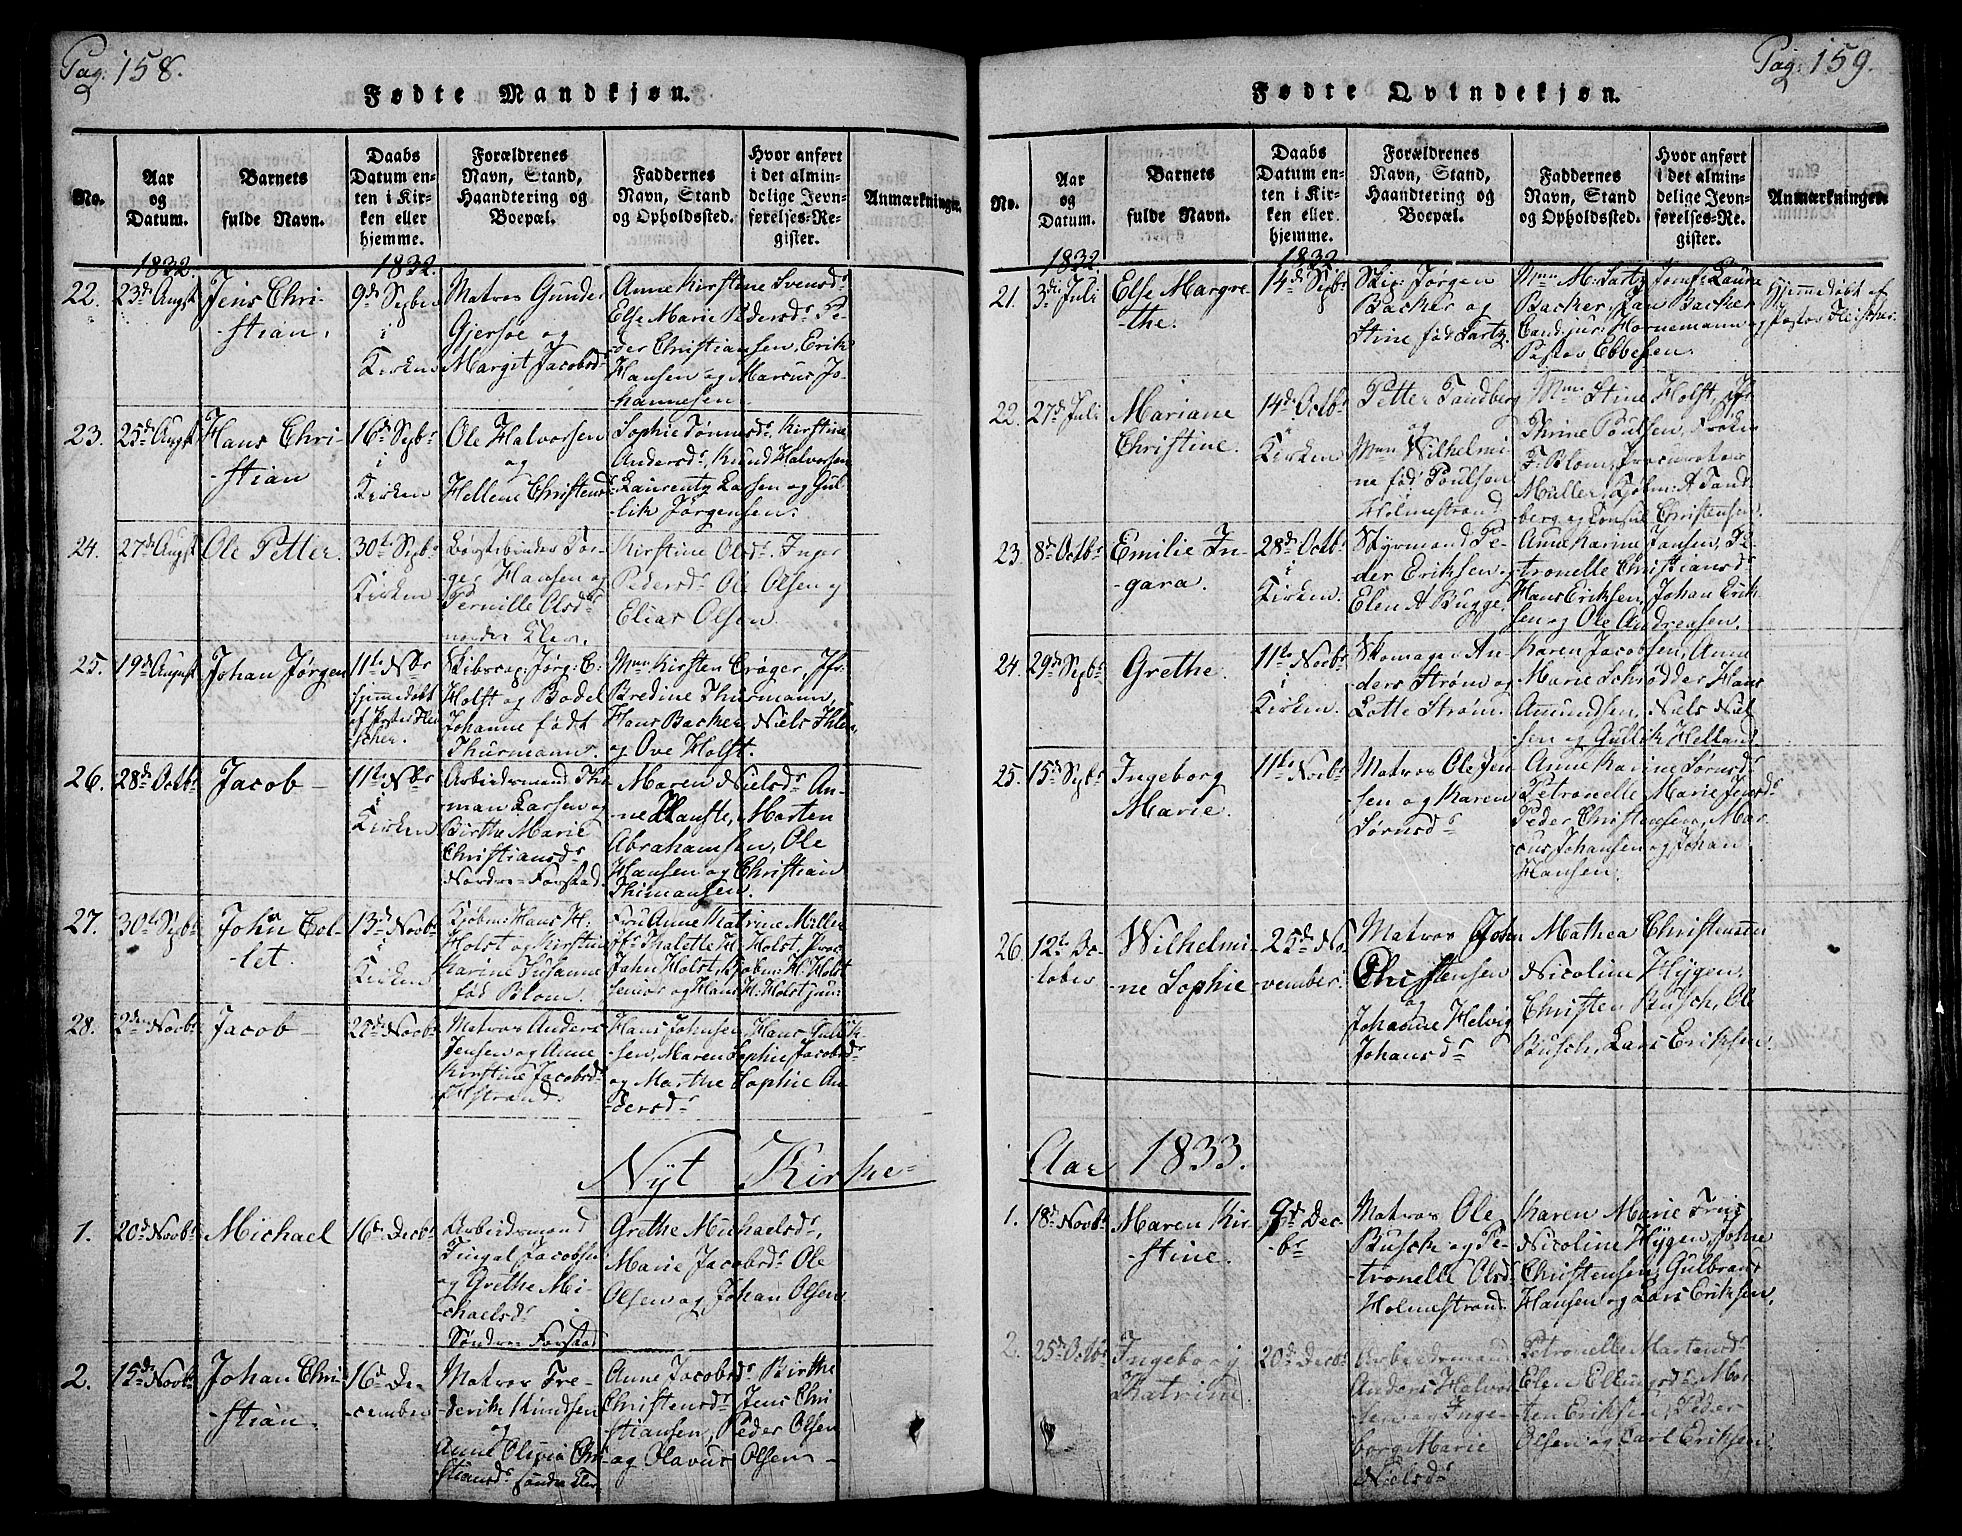 Pag. 158.
Fødte Mandkjøn.
No.
Aar
og
Datum.
Barnets
fulde Navn.
Daabs
Datum en-
ten i Kir-
ken eller
hjemme.
Forældrenes
Navn, Stand,
Haandtering og
Boepæl.
Faddernes
Navn, Stand
og Opholdssted.
Hvor anført
i det almin-
delige Jevn-
førelses-Re-
gister.
Anmærkninger.
1832.
1832.
22.
23d Augst
Jens Chri-
stian.
9d Sepbr
i
Kirken
Matros Gunder
Gjersøe og
Margit Jacobsd
Anne Kirstine Svensdr
Else Marie Pedersdr Pe-
der Christiansen, Erik
Hansen og Marcus Jo-
hannesen.
23.
25d Augst
Hans Chri-
stian
16d Sepbr
i
Kirken
Ole Halvorsen
og
Hellene Christensd
Sophie Tønnesdr Kirstine
Andersdr, Knund Halvorsen
Laurentz Larsen og Gul-
lik Jørgensen.
24.
27d Augst
Ole Petter.
30te Sepbr
i
Kirken
Børstebinder Tor-
ger Hansen og
Pernille Olsdr
nordre Klev.
Kirstine Olsdr Inger
Pedersdr Ole Olsen og
Elias Olsen
25.
19d August
Johan Jørgen
11te Nbr
hjemmedøbt
af Pastor Flei-
scher.
Skibscap: Jørg: C:
Holst og Bodel
Johanne født
Thurmann.
Mmn Kirsten Crøger, Jfr
Bredine Thurmann,
Hans Backer, Niels Ihlen
og Ove Holst.
26.
28d Octbr
Jacob
11te Nbr
i
Kirken
Arbeidsmand Thi-
man Larsen og
Birthe Marie
Christiansdr
Nordre-Forstad
Maren Nielsdr An-
ne Hanste, Morten
Abrahamsen, Ole
Hansen og Christian
Thimansen.
27.
30te Sepbr
John Col-
let.
13d Novbr
i
Kirken
Kjøbm: Hans H:
Holst og Kirstine
Karine Susanne
fød Blom.
Fru Anne Katrine Müller
Jfr Malette H Holst, Proc
John Holst, Kjøbm: H: Holst
senior og Hans H: Holst jun:
28.
2den Novbr
Jacob
25d Novbr
Matros Anders
Jensen og Anne
Kirstine Jacobsdr
Hstrand
Hans Johnsen, Hans Gullik-
sen, Maren Sophie Jacobsdr
og Marthe Sophie An-
dersdr
Nyt Kirke=
1.
20d Novbr
Michael
16d Decbr
Arbeidsmand
Jacobsen
og Grethe Mi-
chaelsdr
Søndre Forstad
Grethe Michaelsdr,
Marie Jacobsdr Ole
Olsen og Johan Olsen
2.
15d Novbr
Johan Chri-
stian.
16d De-
cember
Matros Fre-
derik Knudsen
og
Anne Olivia Chri-
stiansdr søndre Klev
Anne Jacobsdr Birthe
Christensdr Jens Chri-
stiansen, Peder Olsen
og Olavus Olsen
Pag: 159.
Fødte Qvindekjøn.
No.
Aar
og
Datum.
Barnets
fulde Navn.
Daabs
Datum en-
ten i Kir-
ken eller
hjemme.
Forældrenes
Navn, Stand,
Haandtering og
Boepæl.
Faddernes
Navn, Stand
og Opholdssted.
Hvor anført
i det almin-
delige Jevn-
førelses-Re-
gister.
Anmærkninger.
1832.
1832
21.
3die Juli
Else Margre-
the.
14d Sepbr
Skip: Jørgen
Backer og
Stine fød Sartz.
Mmn M: Sartz, Jomf: Laura
Backer, Jan Backer
Cand: jur: Hornemann og
Pastor Ebbesen.
Hjemmedøbt af
Pastor Fleischer.
22.
27d Juli
Mariane
Christine.
14d Octbr
i
Kirken
Petter Tandberg
og
Mmn Wilhelmi-
ne fød Poulsen
Holmestrand
Mmn Stine Holst, Jfr
Thrine Poulsen, Frøken
F: Blom, Procurator
Müller, Kjøbm: A Tand-
berg og Consul Christensen.
23.
8d Octbr
Emilie In-
gara.
28d Octbr
i
Kirken.
Styrmand Pe-
der Eriksen og
Elen A Bugge.
Anne Karine Jansen, Pe-
tronelle Christiansdr
Hans Eriksen, Johan Erik-
sen og Ole Andreasen.
24.
29d Sepbr
Grethe.
11te Novbr
i
Kirken.
Skomager An-
ders Strøm og
Lotte Strøm.
Karen Jacobsen, Anne
Marie Schrødder Hans
Amundsen, Niels Niel-
sen og Gullik Helland.
25.
15d Sepbr
Ingeborg
Marie.
11te Novbr
Matros Ole Jen-
sen og Karen
Sørnsdr
Anne Karine Sørnsdr
Petronelle Marie Jensdr
Peder Christensen, Mar-
cus Johansen og Johan
Hansen.
26.
12te Oc-
tober
Wilhelmi-
ne Sophie
25d No-
vember.
Matros John
Christensen
og
Johanne Helvig
Johansdr
Mathea Christensen
Nicoline Hygen,
Christen Busch, Ole
Busch, Lars Eriksen.
Aar 1833.
1.
18d Novbr
Maren Kir-
stine.
9d Dec-
br
Matros Ole
Busch og Pe-
tronelle Olsd
Holmestrand
Karen Marie
Nicoline Hygen, John
Christensen, Gulbrand
Hansen og Lars Eriksen.
2.
25d Octbr
Ingeborg
Katrine.
20d Decbr
Arbeidsmand
Anders Halvor-
sen og Inge-
borg Marie
Nielsdr
Petronelle Martensdr
Elen Ellingsdr Mor-
ten Eriksen, Peder
Olsen og Carl Eriksen.